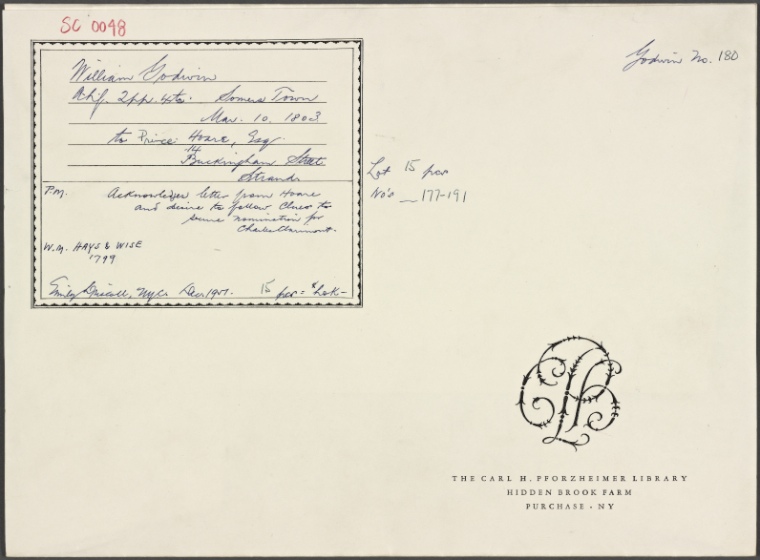 SC 0048
Godwin No. 180
William Godwin
2 pp. 4to. Somers Town
Mar. 10. 1803
to Prince Hoare, Esq.
14
Buckingham Street
Strand
Lot 15 pcs
No's — 177-191
P.M. Acknowledges letter from Hoare
and desire to follow clues to
secure nomination for
Charles Clairmont.
W.M. HAYS & WISE
1799
Emily Driscoll, NYC. Dec 1951. 15 pcs =
THE CARL H. PFORZHEIMER LIBRARY
HIDDEN BROOK FARM
PURCHASE · NY